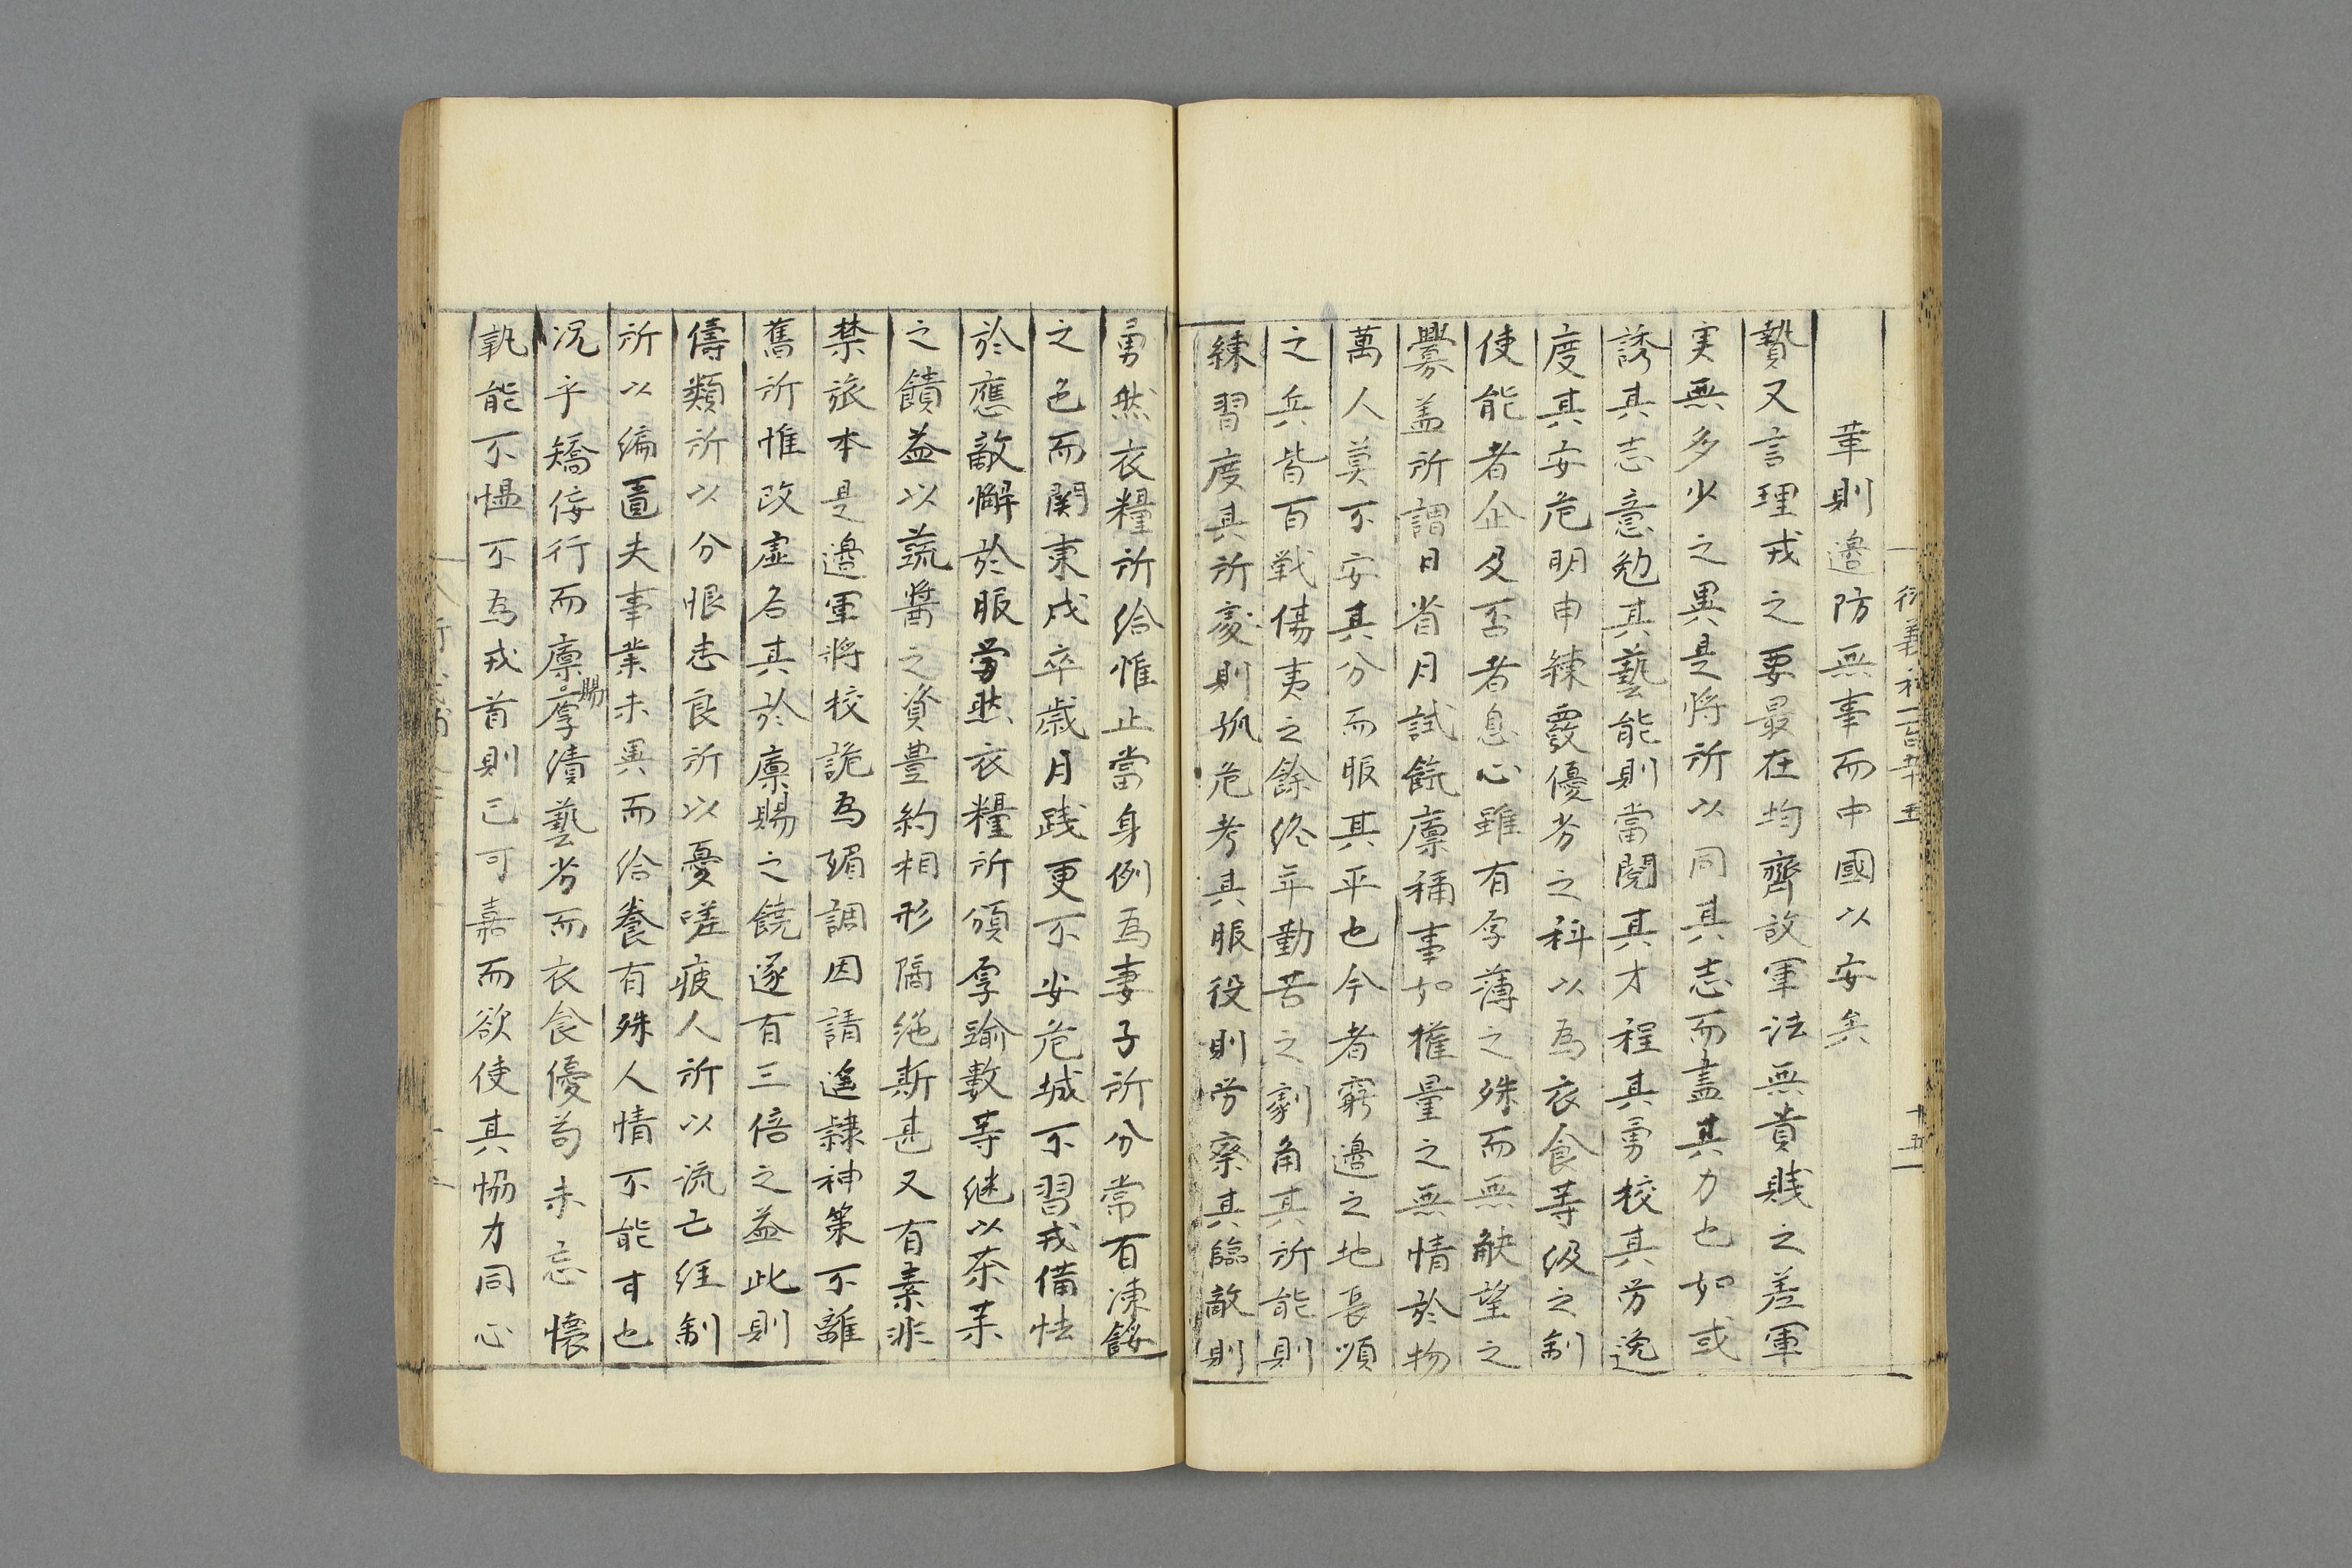 華則邊防無事而中國以安矣
贄又言理戎之要最在均齊故軍法無貴賤之差軍
実無多少之異是将所以同其志而盡其力也如或
誘其志意勉其藝能則當閱其才程其勇校其労逸
度其安危明申練覈優劣之科以為衣食等级之制
使能者企及否者息心雖有厚薄之殊而無觖望之
釁盖所謂日省月試餼廩稱事如權量之無情於物
萬人莫不安其分而服其平也今者窮邊之地長順
之兵皆百戦傷夷之餘終年勤苦之劇角其所能則
練習度其所處則孤危考其服役則労察其臨敵則
勇然衣糧所给惟止當身例為妻子所分常有凍餒
之色而関東戍卒歳月踐更不安危城不習戎備怯
於應敵懈於服労然衣糧所頒厚踰數等继以茶茱
之饋益以蔬醬之資豊約相形隔绝斯甚又有素非
禁旅本是邉軍将校詭為媚調因請遥隷神策不離
舊所惟改虚名其於廩賜之饒遂有三倍之益此則
儔類所以分恨忠良所以憂嗟疲人所以流亡经制
所以编匱夫事業未異而给養有殊人情不能甘也
况乎矯佞行而廩賜厚漬藝劣而衣食優苟未忘懷
孰能不愠不為戎首則已可嘉而欲使其恊力同心